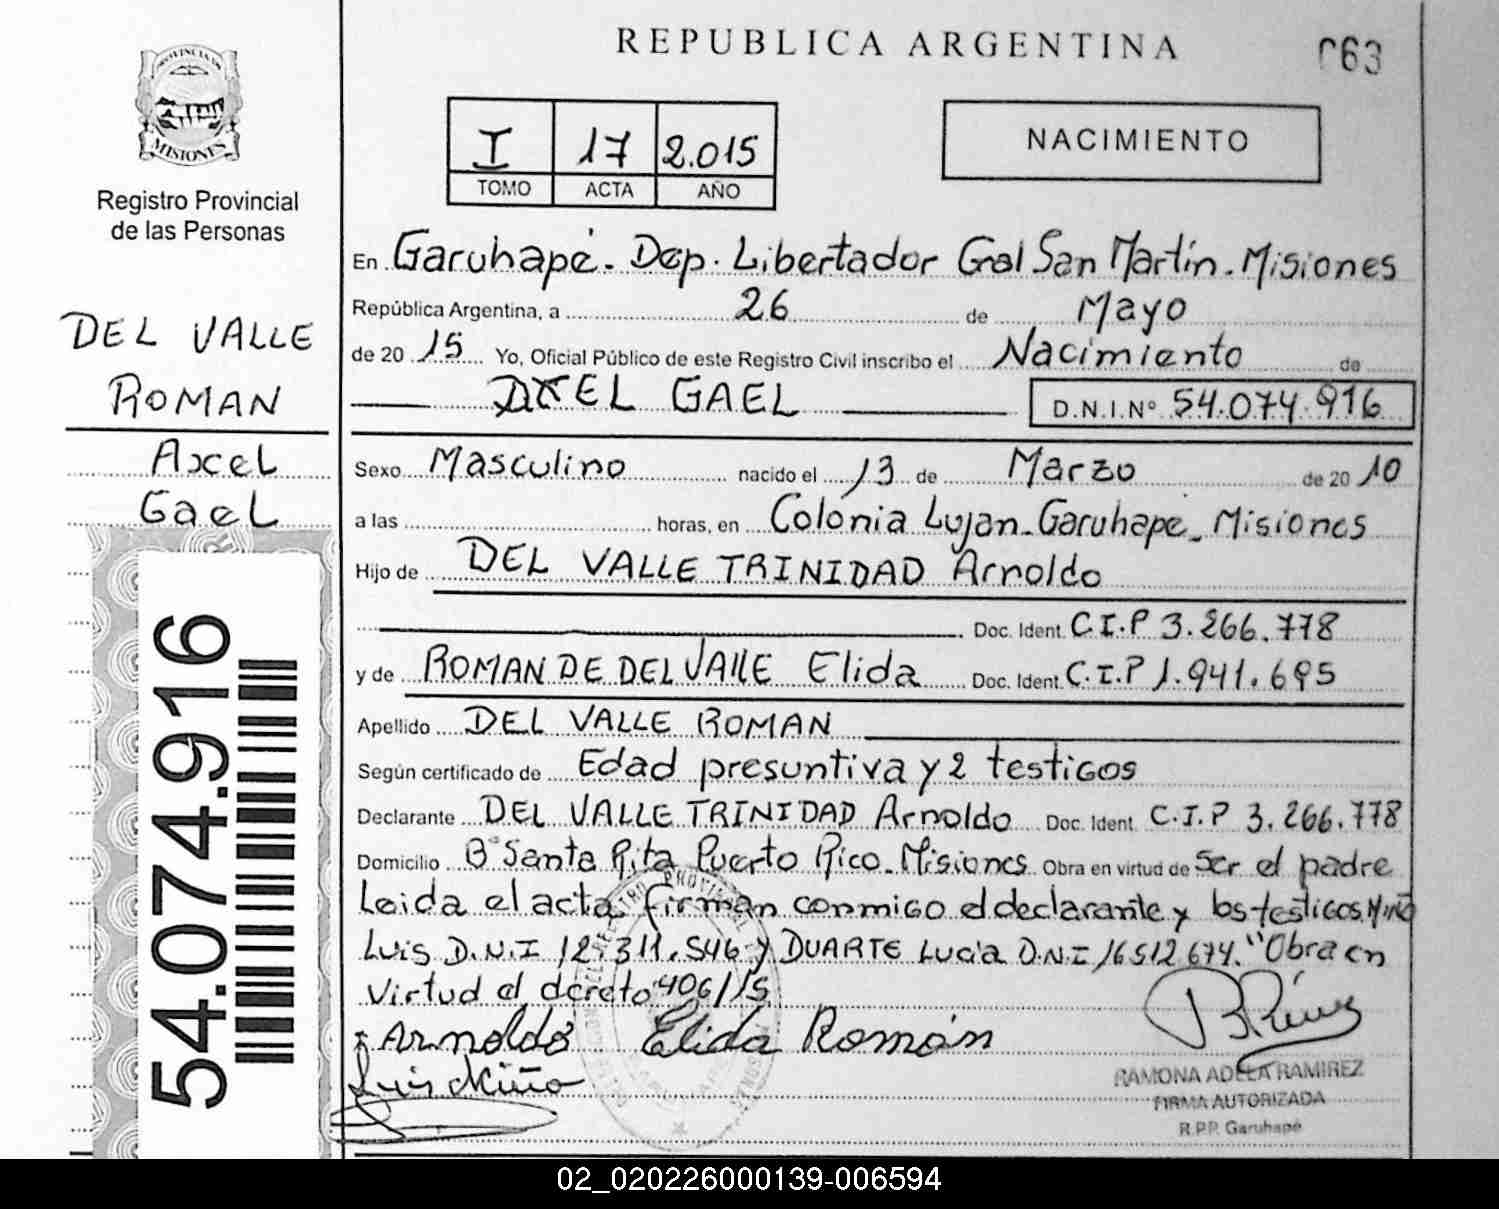 REPUBLICA ARGENTINA
063
PROVINCIA DE
MISIONES
Registro Provincial
de las Personas
I 17 2.015
TOMO ACTA AÑO
NACIMIENTO
En Garuhapé. Dep. Libertador Gral San Martín. Misiones
República Argentina, a 26 de Mayo
de 20 15 Yo, Oficial Público de este Registro Civil inscribo el Nacimiento de
AXEL GAEL D.N.I.Nº 54.074.916
DEL VALLE
ROMAN
Axel
Gael
54.074.916
Sexo Masculino nacido el 13 de Marzo de 20 10
a las horas, en Colonia Lujan. Garuhape. Misiones
Hijo de DEL VALLE TRINIDAD Arnoldo
Doc. Ident. C.I.P 3.266.778
y de ROMAN DE DEL VALLE Elida Doc. Ident. C.I.P 1.941.695
Apellido DEL VALLE ROMAN
Según certificado de Edad presuntiva y 2 testigos
Declarante DEL VALLE TRINIDAD Arnoldo Doc. Ident. C.I.P 3.266.778
Domicilio Bº Santa Rita Puerto Rico. Misiones Obra en virtud de Ser el padre
Leida el acta, firman conmigo el declarante y los testigos, Miño
Luis D.N.I 12.311.546 y DUARTE Lucia D.N.I 16512674. "Obra en
Virtud el decreto 406/15
Arnoldo Elida Román
Luis Miño
RAMONA ADELA RAMIREZ
FIRMA AUTORIZADA
R.P.P. Garuhapé
02_020226000139-006594